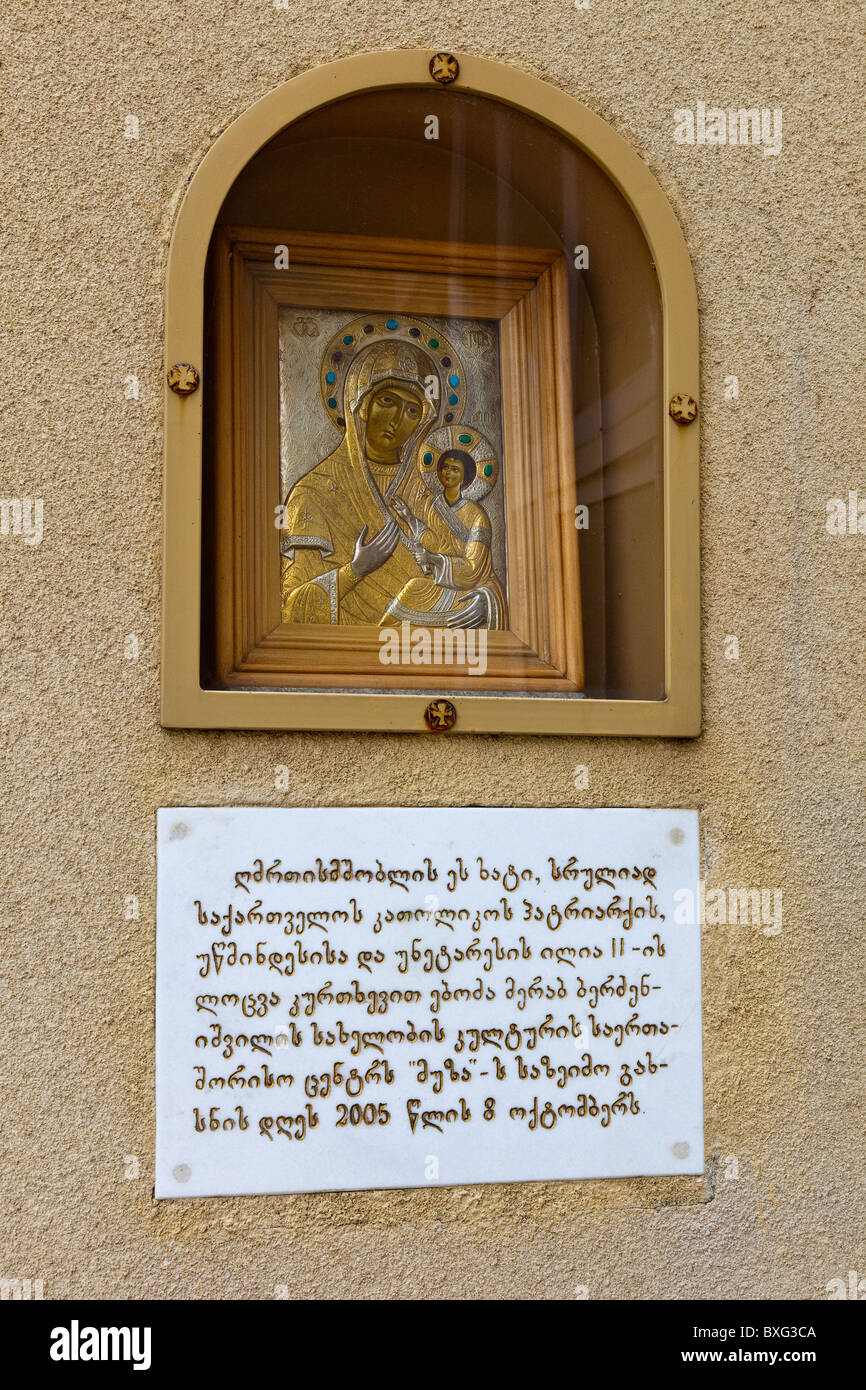 ღმრთისმშობლის ეს ხატი, სრულიად
საქართველოს კათოლიკოს პატრიარქის,
უწმინდესისა და უნეტარესის ილია II-ის
ლოცვა კურთხევით ებოძა მერაბ ბერძენ-
იშვილის სახელობის კულტურის საერთა-
შორისო ცენტრს "მუზა"-ს საზეიმო გახ-
სნის დღეს 2005 წლის 8 ოქტომბერს.
alamy
Image ID: BXG3CA
www.alamy.com